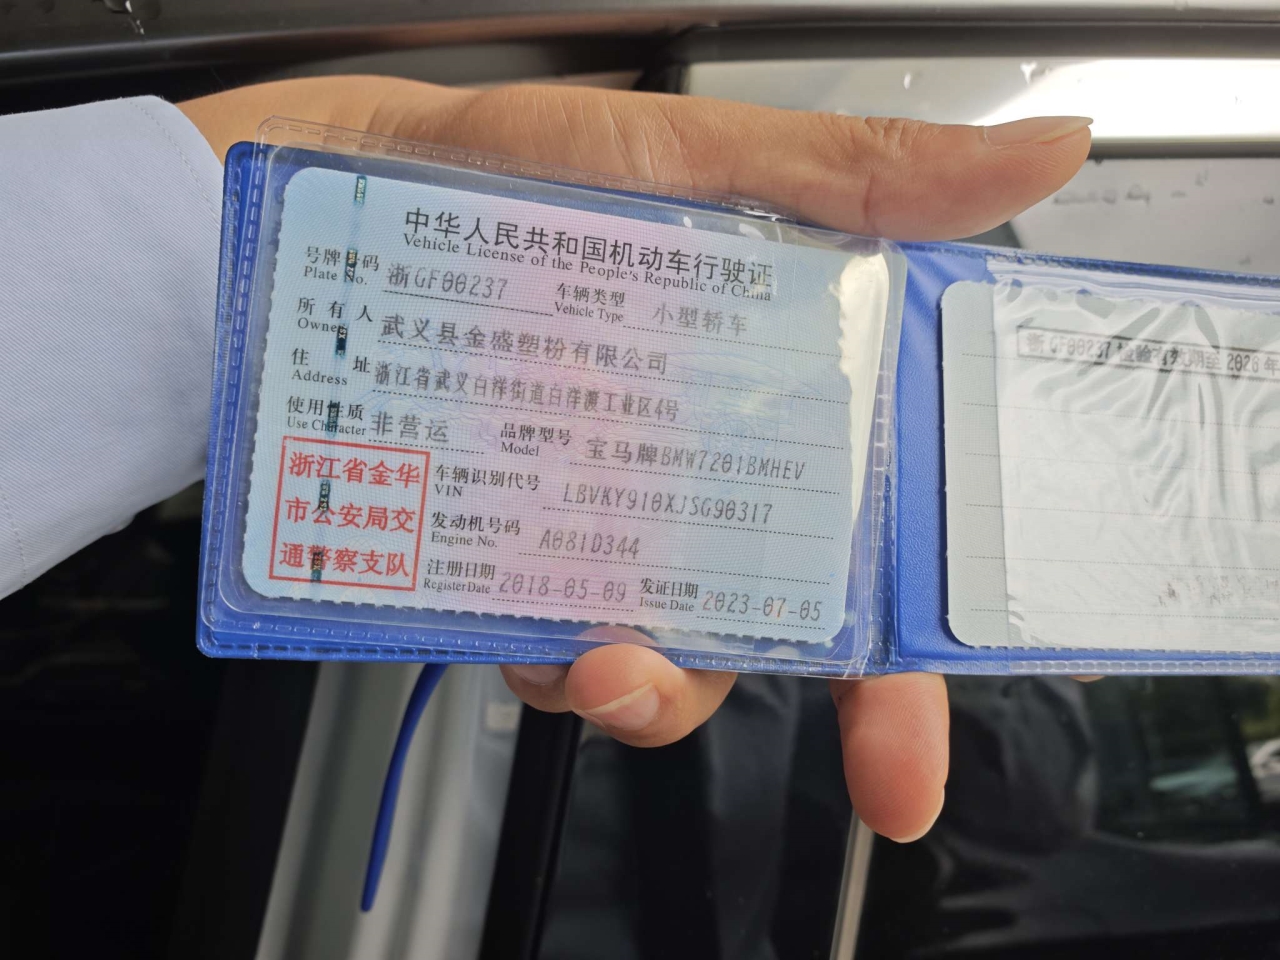 中华人民共和国机动车行驶证
Vehicle License of the People's Republic of China
号牌号码 浙GF00237 车辆类型 小型轿车
Plate No. Vehicle Type
所有人 武义县金盛塑粉有限公司
Owner
住址 浙江省武义白洋街道白洋渡工业区4号
Address
使用性质 非营运 品牌型号 宝马牌BMW7201BMHEV
Use Character Model
浙江省金华
市公安局交
通警察支队
车辆识别代号 LBVKY910XJSG90317
VIN
发动机号码 A081D344
Engine No.
注册日期 2018-05-09 发证日期 2023-07-05
Register Date Issue Date
浙GF00237 检验有效期至 2026年